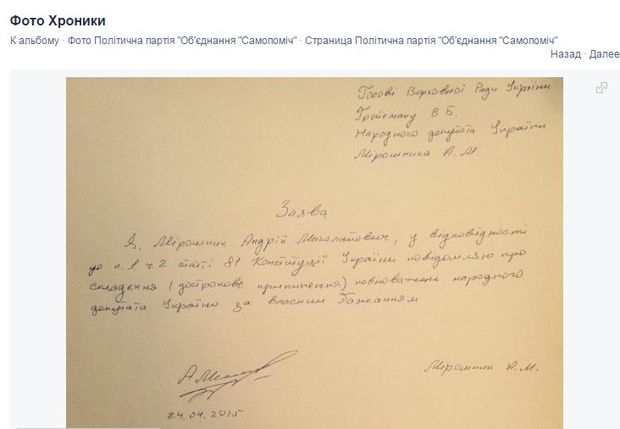 Фото Хроники
К альбому · Фото Політична партія "Об'єднання "Самопоміч" · Страница Політична партія "Об'єднання "Самопоміч"
Назад · Далее
Голові Верховної Ради України
Гройсману В.Б.
Народного депутата України
Мірошника А.М.
Заява
Я, Мірошник Андрій Миколайович, у відповідності
до п.1 ч 2 статті 81 Конституції України повідомляю про
складення (дострокове припинення) повноважень народного
депутата України за власним бажанням
Мірошник А.М.
24.04.2015